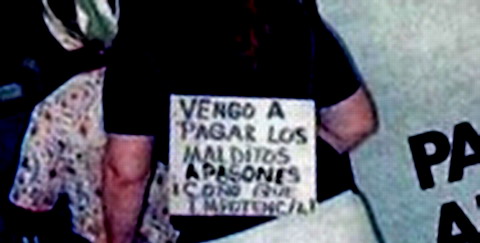 VENGO A
PAGAR LOS
MALDITOS
APAGONES
¡COÑO QUE
IMPOTENCIA!
PA
A